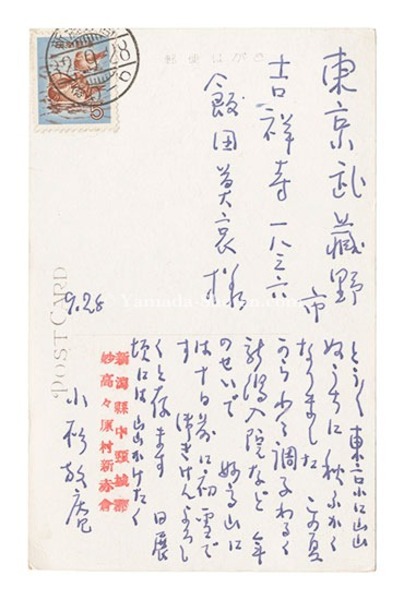 きがは便郵
東京武藏野
市
吉祥寺一八三六
飯田莫哀様
POST CARD
9.28
とう〱東京に出
ぬうちに秋ふかく
なりました この夏
から 調子わるく
新潟入院など 年
のせいで 妙高山に
は十日前に初雪で
す 御きげんよろし
くと存ます 日展
頃には出かけたく
新潟縣中頸城郡
妙高々原村新赤倉
小杉放庵